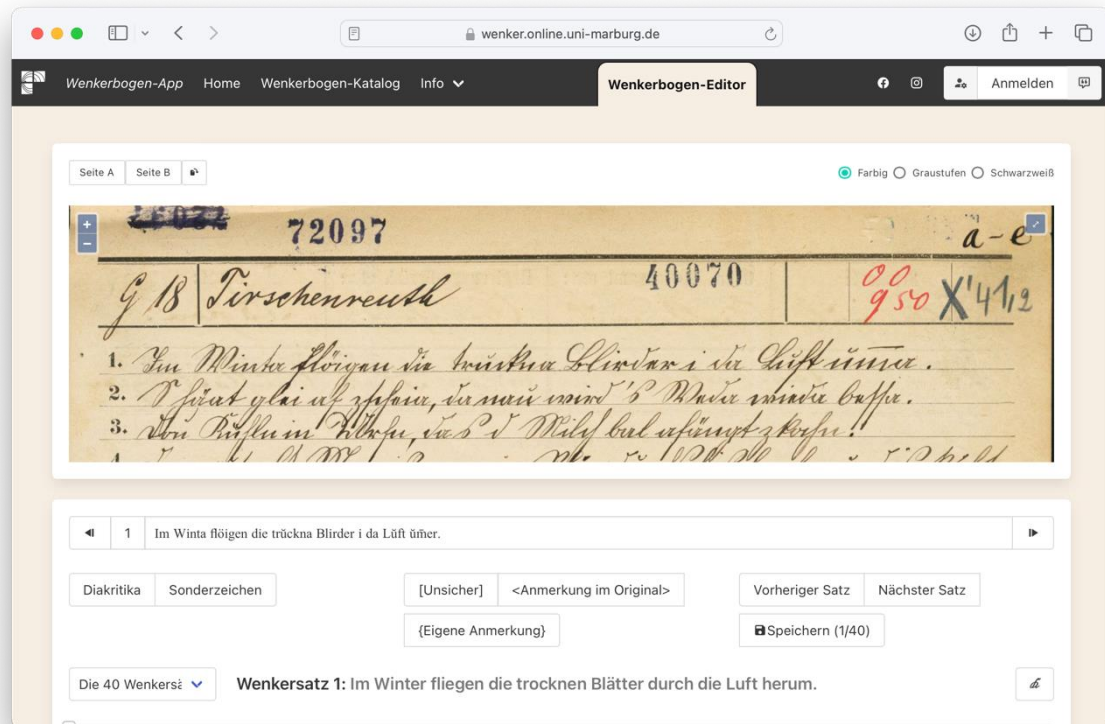 wenker.online.uni-marburg.de
Wenkerbogen-App Home Wenkerbogen-Katalog Info Wenkerbogen-Editor Anmelden
Seite A Seite B Farbig Graustufen Schwarzweiß
72097
a-e
G 18 Tirschenreuth 40070 00
9 50 X'41,2
1. Im Winta flöigen die trŭckna Blirder i da Lŭft ŭm̅a.
2. S häat glei af zschneia, da nau wird 's Weda wieda bessa.
3. Dou Kuhln in Uofn, das d Milch bal afängt zkochn!
1 Im Winta flöigen die trŭckna Blirder i da Lŭft ŭm̃er.
Diakritika Sonderzeichen [Unsicher] <Anmerkung im Original> Vorheriger Satz Nächster Satz
{Eigene Anmerkung} Speichern (1/40)
Die 40 Wenkersä Wenkersatz 1: Im Winter fliegen die trocknen Blätter durch die Luft herum.